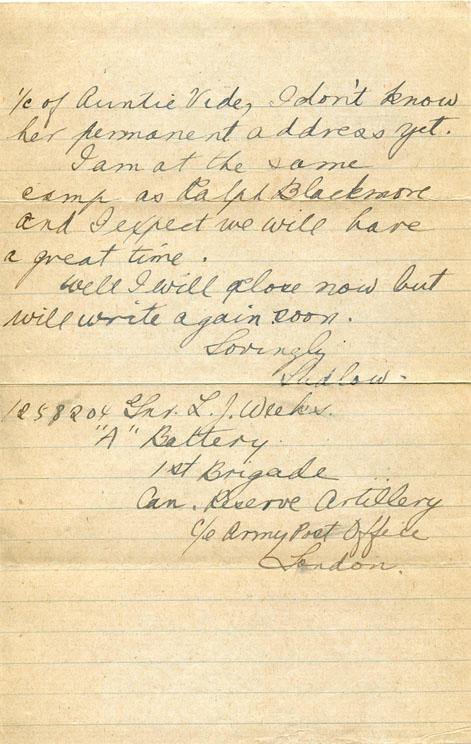 c/o of Auntie Vide, I don't know
her permanent address yet.
I am at the same
camp as Ralph Blackmore
and I expect we will have
a great time.
Well I will close now but
will write again soon.
Lovingly
Ludlow.
1258204 Gnr. L. J. Weeks.
"A" Battery
1st Brigade
Can. Reserve Artillery
c/o Army Post Office
London.